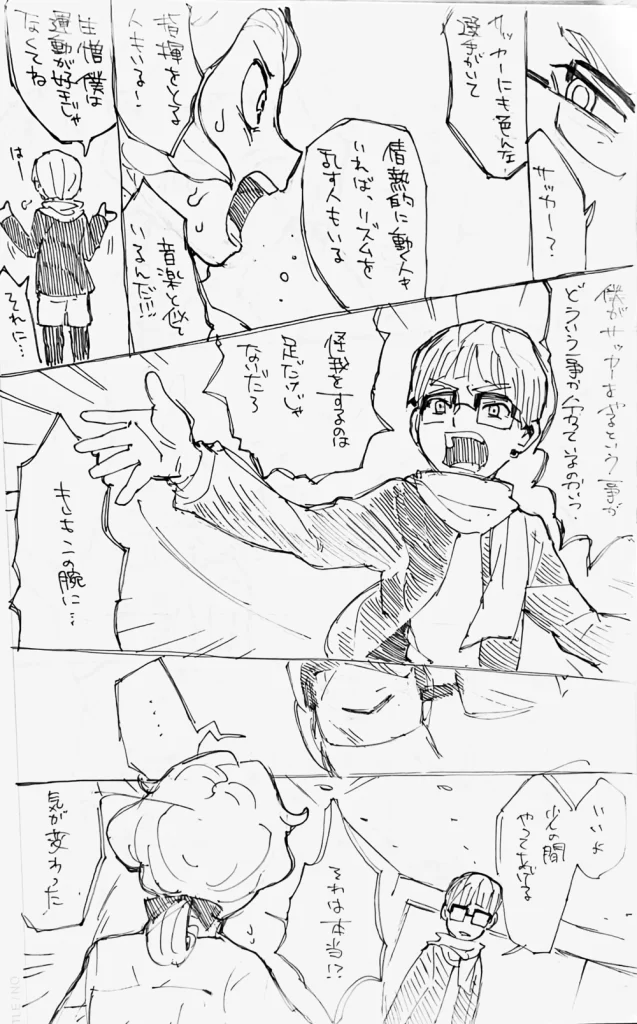 サッカー?
サッカーにも色んな
選手がいて
情熱的に動く人も
いれば、リズムを
乱す人もいる
指揮をとる
人もいる!
音楽と似て
いるんだ!!!
生憎僕は
運動が好きじゃ
なくてね
はー
それに…
僕がサッカーをするという事が
どういう事か
怪我をするのは
足だけじゃ
ないだろ
もしもこの腕に…
……
いいよ
少しの間
やってあげるよ
それは本当!?
気が変わった